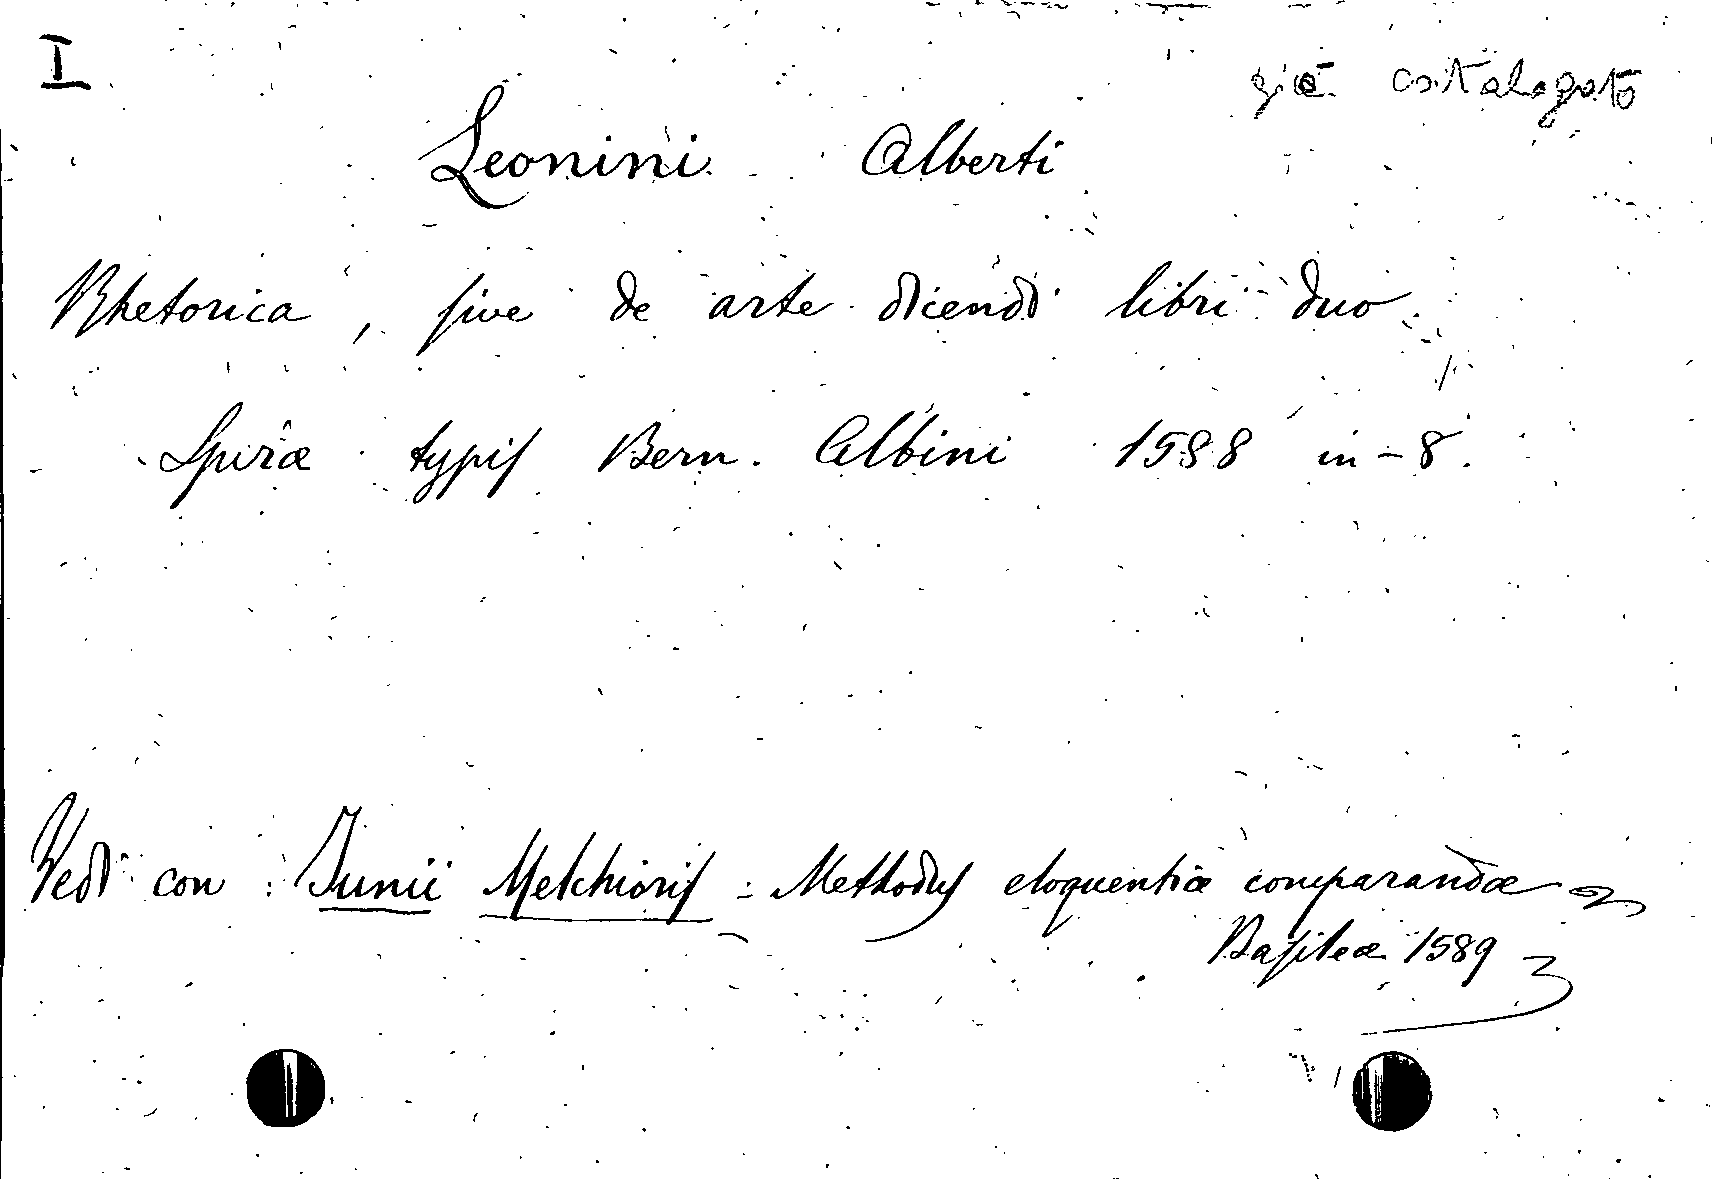 I
già catalogato
Leonini Alberti
Rhetorica, sive de arte dicendi libri duo.
Spiræ typis Bern. Albini 1588 in-8.
Vedi con: Junii Melchioris - Methodus eloquentiæ comparandæ
Basileæ 1589